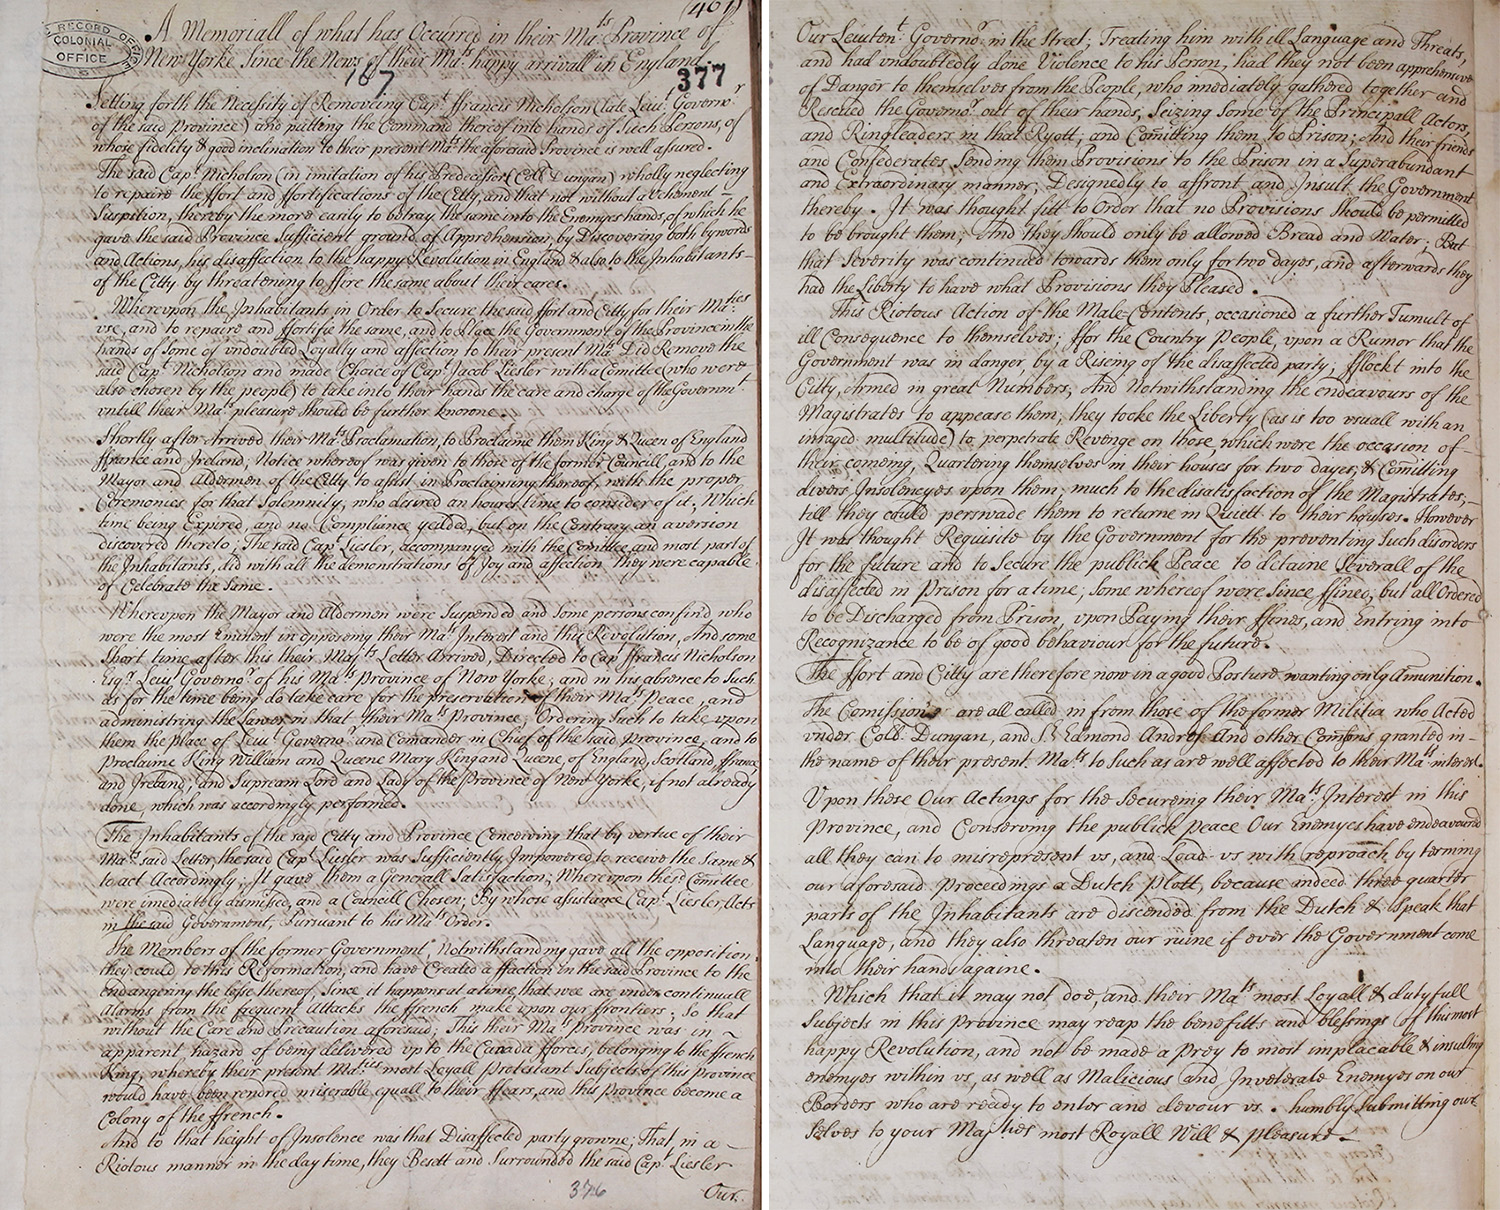 (461)
RECORD OFFICE
COLONIAL
OFFICE
A Memoriall of what has Occurred in their Ma:ts Province of
New Yorke Since the News of their Ma:ts happy arrivall in England.
187 377
Setting forth the Necesity of Removeing Capt. ffrancis Nicholson (late Leiut Governor
of the said Province) and putting the Command thereof into hands of Such Persons, of
whose fidelity & good inclination to their present Ma:ts the aforesaid Province is well assured.
The said Capt. Nicholson (in imitation of his Predecessor Coll Dungan) wholly neglecting
to repaire the ffort and ffortifications of the Citty, and that not without a Vehement
Suspition, thereby the more easily to betray the same into the Enemyes hands, of which he
gave the said Province Sufficient ground of Apprehension, by Discovering both by words
and Actions, his disaffection to the happy Revolution in England & also to the Inhabitants
of the Citty by threatening to ffire the same about their eares.
Whereupon the Inhabitants in Order to Secure the said ffort and Citty for their Ma:ties
vse, and to repaire and fortifie the same, and to Place the Government of the Province in the
hands of Some of vndoubted Loyalty and affection to their present Ma:ts Did Remove the
said Capt. Nicholson and made Choice of Capt. Jacob Liesler with a Comittee (who were
also chosen by the people) to take into their hands the care and charge of the Governmt.
vntill their Ma:ts pleasure should be further knowne.
Shortly after Arrived their Ma:ts Proclamation, to Proclaime them King & Queen of England
ffrance and Ireland; Notice whereof was given to those of the former Councill, and to the
Mayor and Aldermen of the Citty to assist in Proclaiming thereof, with the proper
Ceremonies for that Solemnity, who desired an houres time to consider of it, Which
time being Expired, and no Compliance yeilded, but on the Contrary an aversion
discovered thereto; The said Capt. Liesler, accompanyed with the Comittee and most part of
the Inhabitants, did with all the demonstrations of Joy and affection they were capable
of Celebrate the Same.
Whereupon the Mayor and Aldermen were Suspended and Some persons confind who
were the most Eminent in opposeing their Ma:ts Interest and this Revolution, And some
Short time after this their Maj:ts Letter Arrived, Directed to Cap: ffrancis Nicholson
Esqr. Leiut Governor of his Ma:ts Province of New Yorke; and in his absence to Such
as for the time being do take care for the preservation of their Ma:ts Peace, and
administring the Lawes in that their Ma:ts Province, Ordering Such to take upon
them the place of Leiut Governor and Comander in Chief of the said Province, and to
Proclaime King William and Queene Mary King and Queene, of England, Scotland, ffrance
and Ireland, and Supream Lord and Lady of the Province of New Yorke, if not already
done, which was accordingly performed.
The Inhabitants of the said Citty and Province Conceiving that by vertue of their
Ma:ts said Letter, the said Capt. Liesler was Sufficiently Impowered to receive the Same &
to act Accordingly; It gave them a Generall Satisfaction; Whereupon the sd Comittee
were imediately dismissed, and a Councill Chosen; By whose assistance Capt. Liesler Acts
in the said Government, Pursuant to his Ma:ts Order.
The Members of the former Government, Notwithstanding gave all the opposition
they could to this Reformation, and have Created a ffaction in the said Province to the
Endangering the losse thereof, Since it happens at a time, that wee are under continuall
Alarms from the frequent Attacks the ffrench make upon our ffrontiers; So that
without the Care and Precaution aforesaid; This their Ma:ts Province was in
apparent hazard of being delivered up to the Canada fforces, belonging to the ffrench
King, whereby their present Ma:ties most Loyall Protestant Subjects of this Province
would have been rendred miserable equall to their ffears, and this Province become a
Colony of the ffrench.
And to that height of Insolence was that Disaffected party growne; That, in a
Riotous manner in the day time, they Besett and Surrounded the said Capt. Liesler
376 Our
Our Leiutent. Governor, in the Street; Treating him with ill Language and Threats,
and had vndoubtedly done Violence to his Person, had they not been apprehensive
of Danger to themselves from the People, who imediately gathered together and
Rescued the Governor out of their hands, Seizing Some of the Principall Actors,
and Ringleaders in that Ryott; and Comitting them to Prison; And their friends
and Confederates Sending them Provisions to the Prison in a Superabundant
and Extraordinary manner, Designedly to affront and Insult the Government
thereby. It was thought fitt to Order that no Provisions Should be permitted
to be brought them; And they Should only be allowed Bread and Water; But
that Severity was continued towards them only for two dayes, and afterwards they
had the Liberty to have what Provisions they Pleased.
This Riotous Action of the Male-Contents, occasioned a further Tumult of
ill Consequence to themselves; ffor the Country People, vpon a Rumor that the
Government was in danger, by a Riseing of the disaffected party, fflockt into the
Citty, Armed in great Numbers, And Notwithstanding the endeavours of the
Magistrates to appease them, they tooke the Liberty (as is too vsuall with an
inraged multitude) to perpetrate Revenge on those, which were the occasion of
their comeing, Quartering themselves in their houses for two dayes, & Comitting
divers Insolencyes vpon them, much to the disatisfaction of the Magistrates,
till they could perswade them to returne in Quiett to their houses. However
It was thought Requisite by the Government for the preventing Such disorders
for the future and to Secure the publick Peace to detaine Severall of the
disaffected in Prison for a time; Some whereof were Since ffined, but all Ordered
to be Discharged from Prison, vpon Paying their ffines, and Entring into
Recognizance to be of good behaviour for the future.
The ffort and Citty are therefore now in a good Posture wanting only Amunition.
The Comissions are all called in from those of the former Militia who Acted
vnder Coll. Dungan, and Sr. Edmond Andros And other Comissns granted in
the name of their present Ma:ts to Such as are well affected to their Ma:ts interest.
Upon these Our Actings for the Secureing their Ma:ts Interest in this
Province, and Conserving the publick peace Our Enemyes have endeavoured
all they can to misrepresent vs, and Load vs with reproach, by terming
our aforesaid proceedings a Dutch Plott, because indeed three quarter
parts of the Inhabitants are discended from the Dutch & Speak that
Language, and they also threaten our ruine if ever the Government come
into their hands againe.
Which that it may not doe, and their Ma:ts most Loyall & dutyfull
Subjects in this Province may reap the benefitts and blessings of this most
happy Revolution, and not be made a Prey to most implacable & insulting
enemyes within vs, as well as Malicious and Inveterate Enemyes on our
Borders who are ready to enter and devour vs. humbly Submitting our
selves to your Majties most Royall Will & Pleasure.